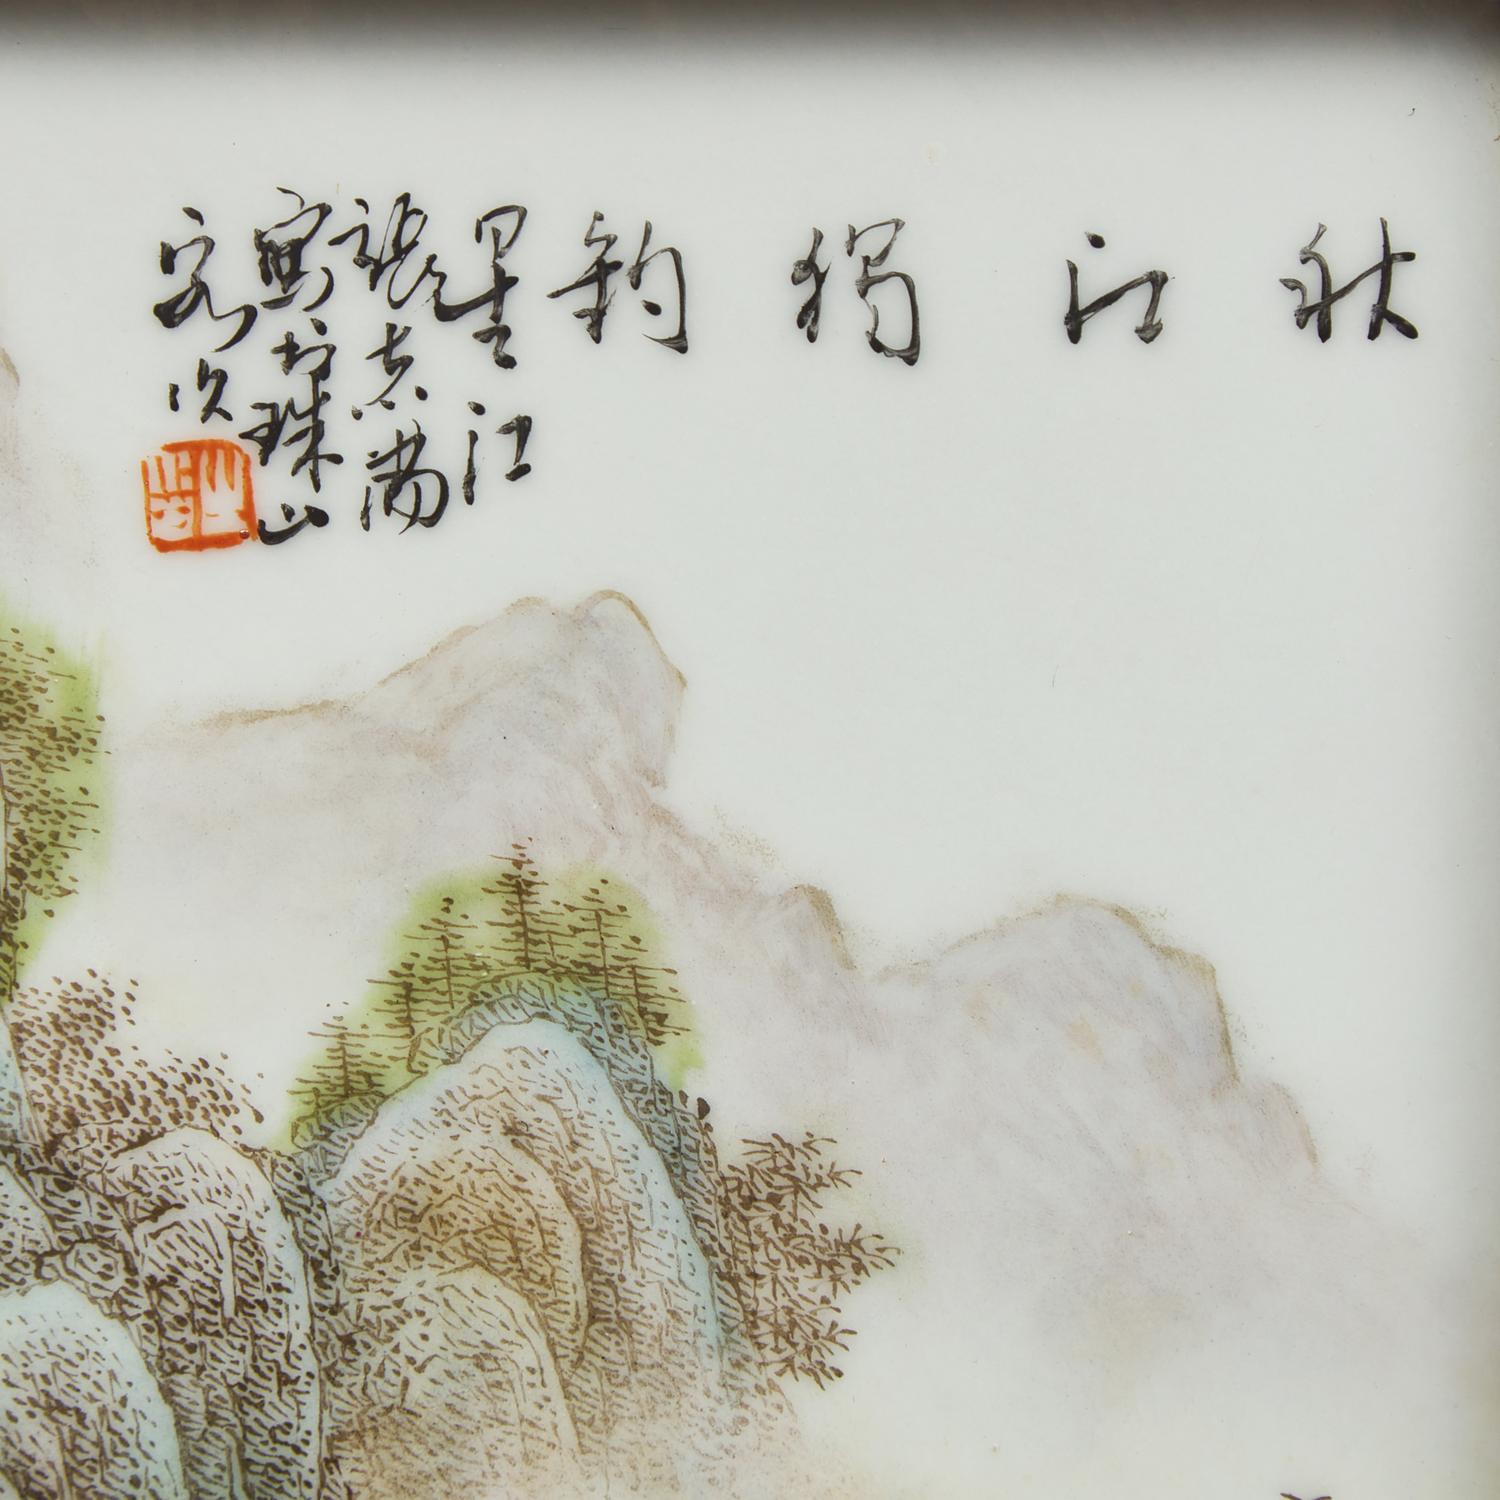 秋江獨釣
星江
張志湯
寫於珠山
客次